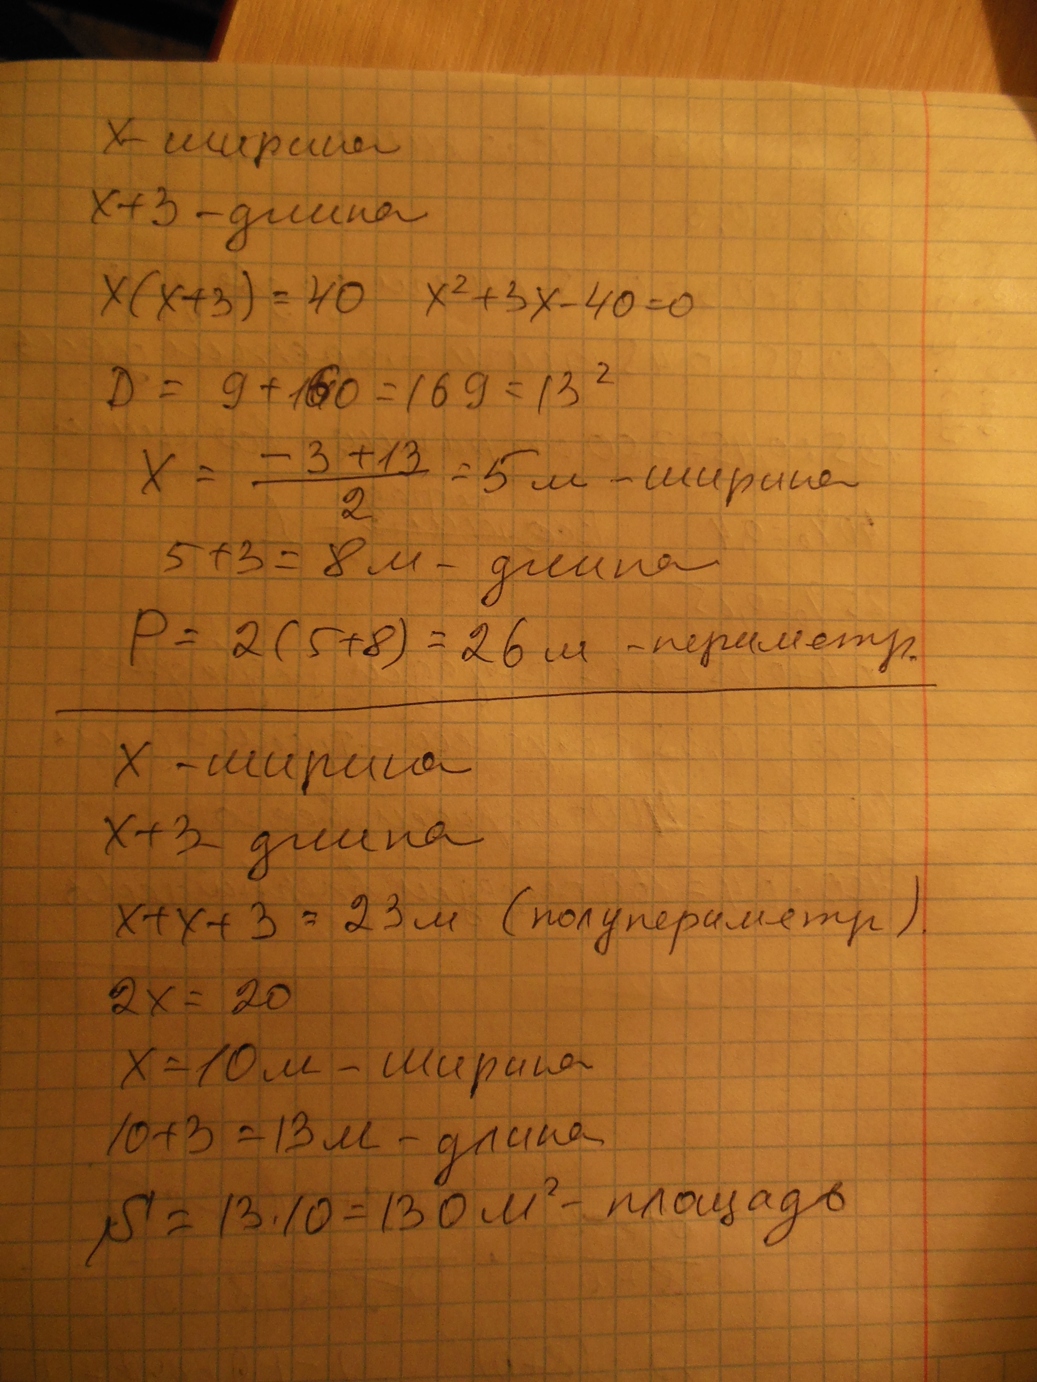 x - ширина
x+3 - длина
x(x+3) = 40 x²+3x-40=0
D = 9+160 = 169 = 13²
x = (-3+13)/2 = 5 м - ширина
5+3 = 8 м - длина
P = 2(5+8) = 26 м - периметр.
x - ширина
x+3 - длина
x+x+3 = 23 м (полупериметр).
2x = 20
x = 10 м - ширина
10+3 = 13 м - длина
S = 13·10 = 130 м² - площадь